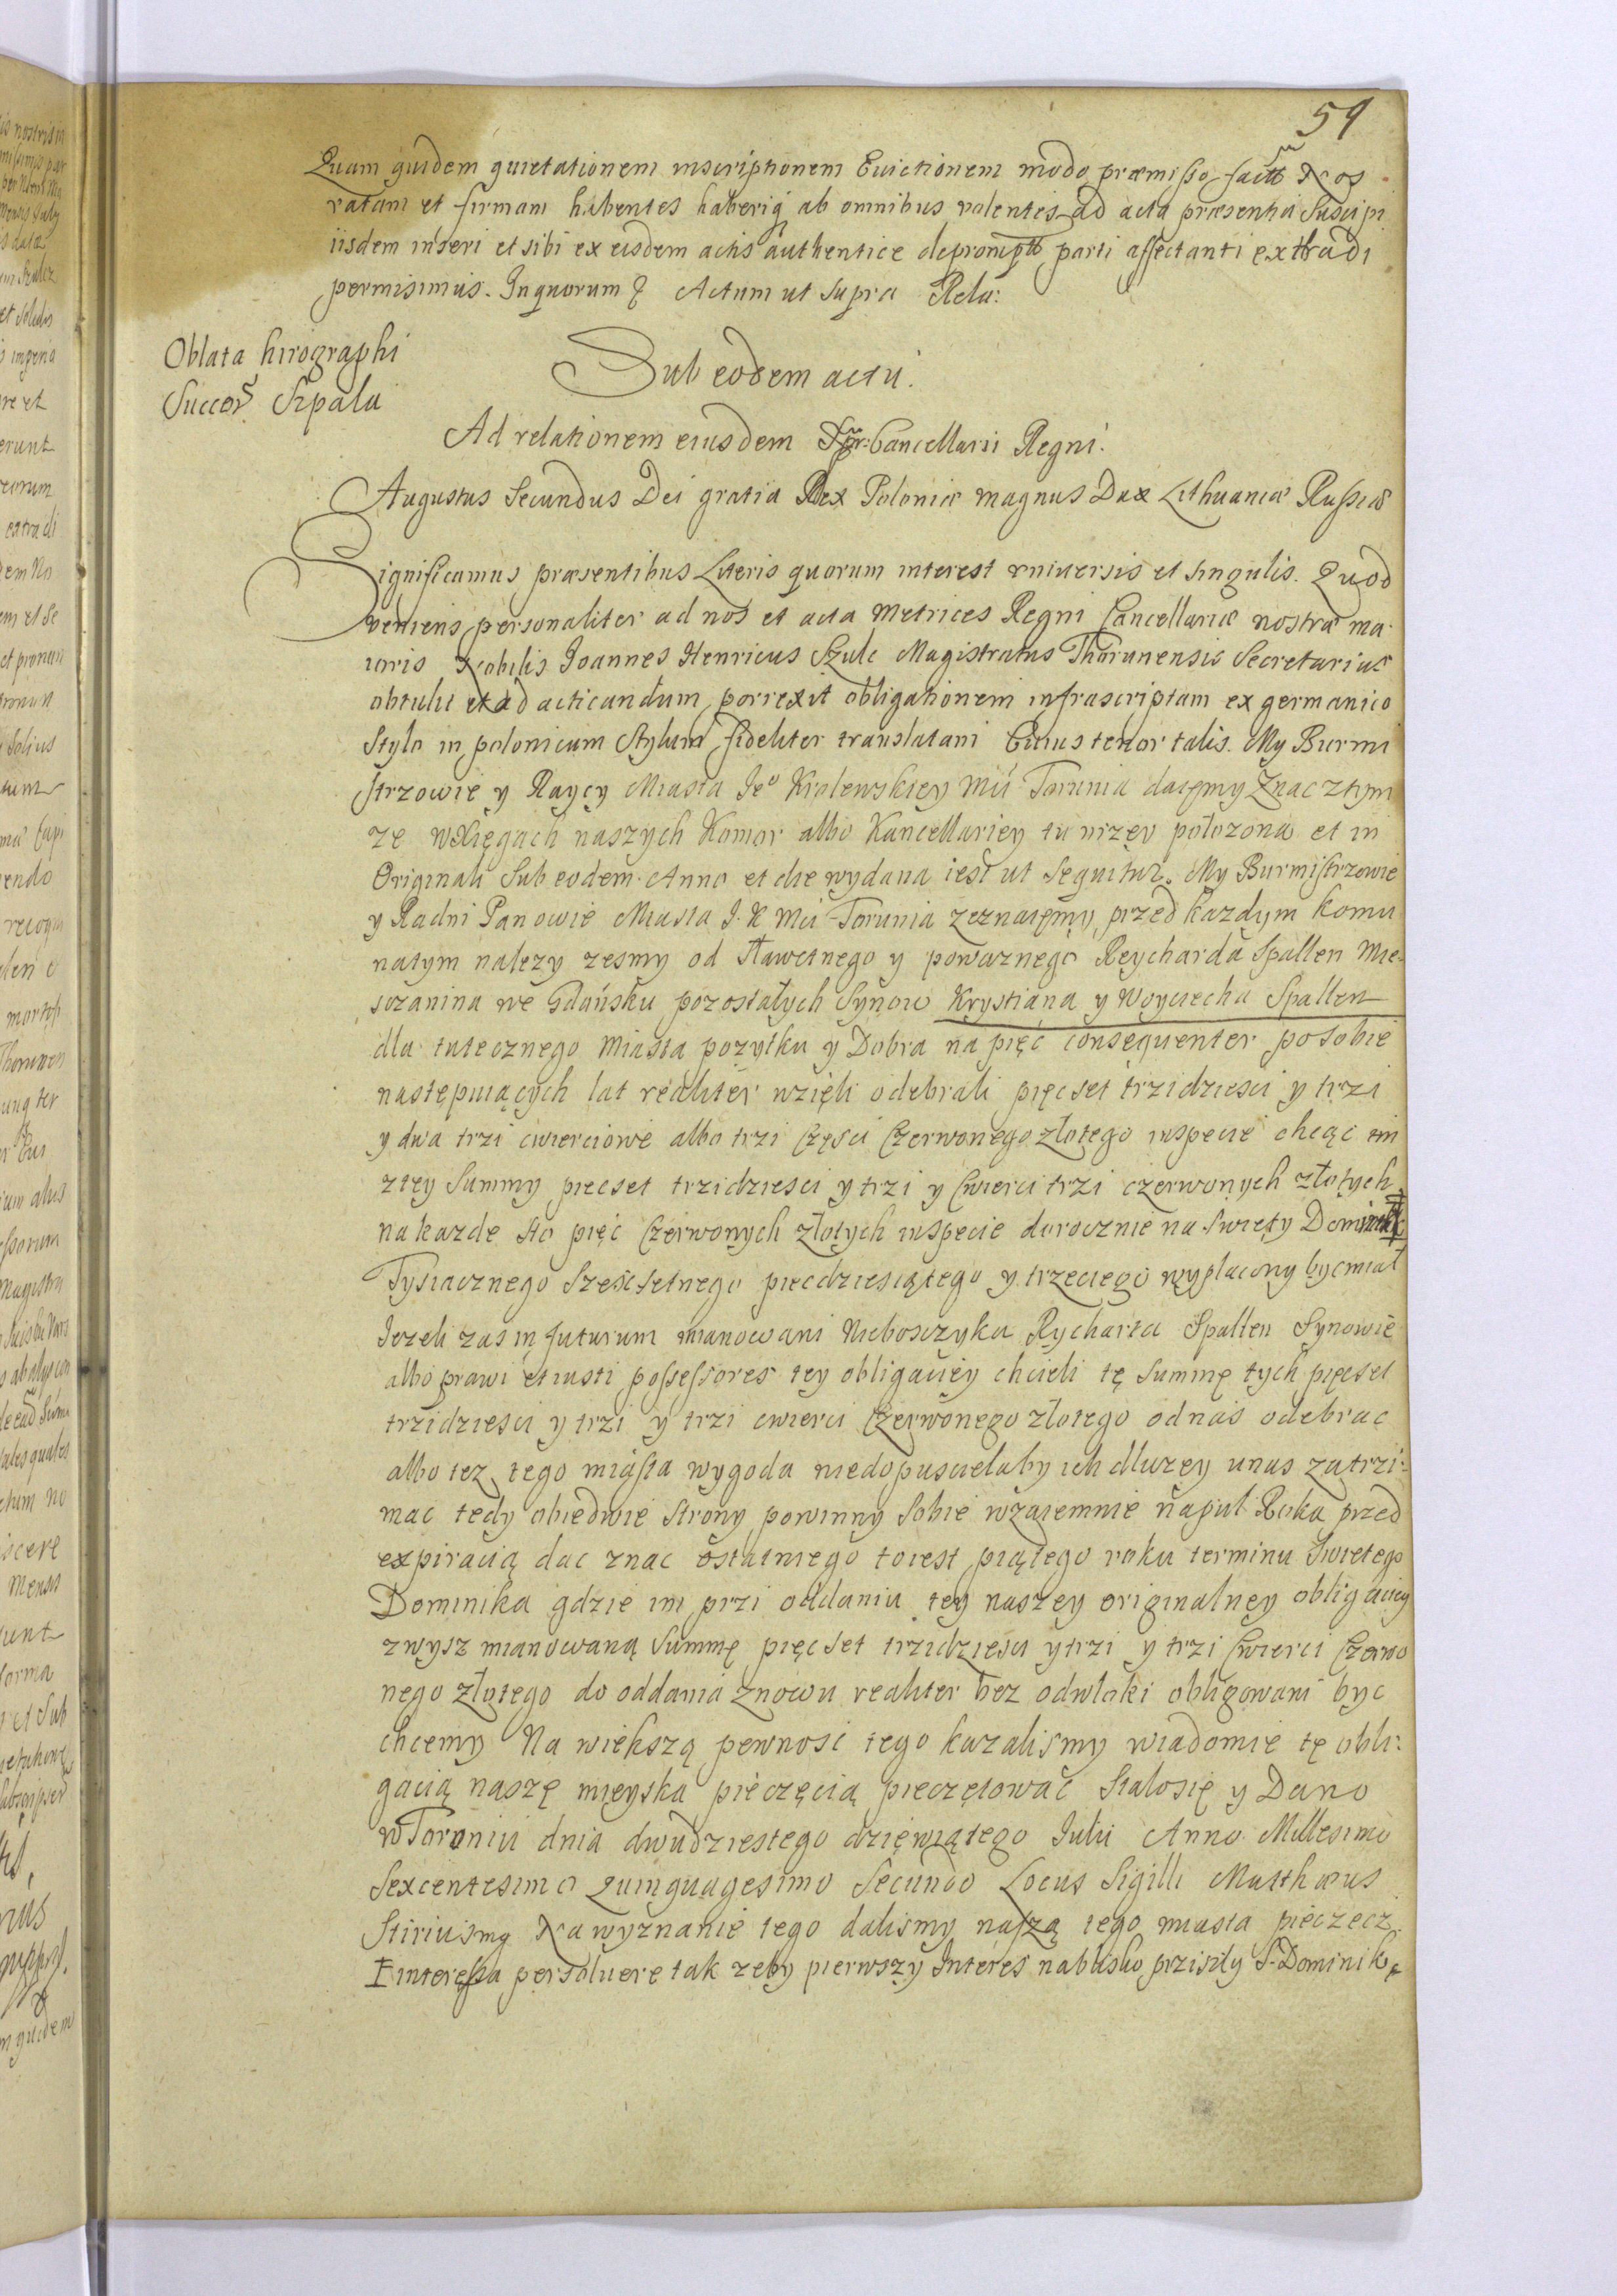 59
Quam quidem quietationem inscriptionem Evictionem modo præmisso factã Nos
ratam et firmam habentes haberiq ab omnibus volentes ad acta præsentia Suscipi
iisdem inseri et sibi ex eisdem actis authentice deprompt parti affectanti extradi
permisimus. In quorum Actum ut supra Rela:
Oblata hirographi
Succor Szpala
Sub eodem actu.
Ad relationem eiusdem Cancellarii Regni.
Augustus Secundus Dei gratia Rex Poloniæ magnus Dux Lithuaniæ Russiæ
Significamus præsentibus Literis quorum interest universis et singulis. Quod
veniens personaliter ad nos et acta Metrices Regni Cancellariæ nostræ ma
ioris Nobilis Joannes Henricus Szulc Magistratus Thorunensis Secretarius
obtulit et ad acticandum porrexit obligationem infrascriptam ex germanico
Stylo in polonicum Stylum fideliter translatam Cuius tenor talis. My Burmi
strzowie y Raycy Miasta Jeo Krolewskiey Mci Torunia daięmy Znac ztym
ze wXięgach naszych Komor albo Kancellariey tu nizey połozona et in
Originali Sub eodem Anno et die wydana iest ut Sequitur. My Burmistrzowie
y Radni Panowie Miasta J. K Mci Torunia zeznaięmy przed kazdym komu
natym nalezy zesmy od Sławetnego y powaznego Reycharda Spallen Mie
sczanina we Gdańsku pozostałych Synow Krystiana y Woyciecha Spallen
dla tutecznego Miasta pozytku y Dobra na pięć consequenter posobie
nastepuiących lat realiter wzięli odebrali pięcset trzidziesci y trzi
y dwa trzi cwierciowe albo trzi części Czerwonego złotego inspecie chcąc im
ztęy Summy piecset trzidziesci y trzi y Cwierci trzi czerwonych złotych
na kazde sto pięć Czerwonych złotych inspecie dorocznie na Swięty Dominik
Tysiacznego Szescsetnego piecdziesiątego y trzeciego wypłacony bycmiał
Jezeli zas in futurum mianowani Nieboszczyka Rycharta Spallen Synowie
albo prawi et iusti possessores tey obligaciey chcieli tę Summę tych pięcset
trzidziesci y trzi y trzi cwierci Czerwonego złotego odnas odebrac
albo tez tego miasta wygoda niedopuscielaby ich dluzey unas zatrzi:
mac tedy obiedwie Strony powinny Sobie wzaiemnie napul Roka przed
expiracią dac znac ostatniego toiest piątego roku terminu Swietego
Dominika gdzie im przi oddaniu tey naszey originalney obligaciey
zwysz mianowaną Summę pięcset trzidziesci ytrzi y trzi Cwierci Czerwo
nego złotego do oddania znowu realiter bez odwłoki obligowani byc
chcemy Na większą pewnosc tego kazalismy wiadomie tę obli:
gacią naszę mieyska pieczęcią pieczętować Stałosię y Dano
wToruniu dnia dwudziestego dzięwiątego Julii Anno Millesimo
Sexcentesimo Quinquagesimo Secundo Locus Sigilli Matthæus
Stiriusmq Na wyznanie tego dalismy naszą tego miasta pieczecz
Ŧ interessa persoluere tak zeby pierwszy Interes nablisko przyszly S. Dominik